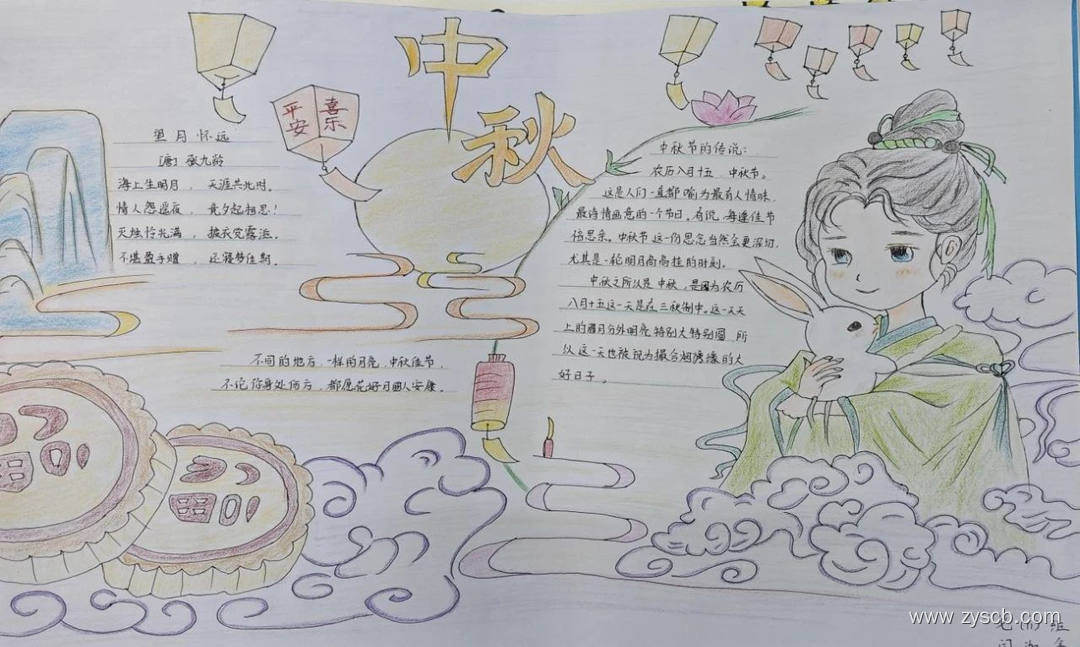 中秋
平安
喜乐
望月怀远
[唐] 张九龄
海上生明月，天涯共此时。
情人怨遥夜，竟夕起相思！
灭烛怜光满，披衣觉露滋。
不堪盈手赠，还寝梦佳期。
不同的地方，一样的月亮，中秋佳节，
不论你身处何方，都愿花好月圆人安康。
中秋节的传说：
农历八月十五，中秋节。
这是人们一直都喻为最有人情味，
最诗情画意的一个节日。有说，每逢佳节
倍思亲。中秋节这一份思念当然会更深切，
尤其是一轮明月高高挂的时刻。
中秋之所以是中秋，是因为农历
八月十五这一天是在三秋之中。这一天天
上的圆月分外明亮特别大特别圆，所
以这一天也被视为撮合姻缘的大
好日子。
www.zyscb.com